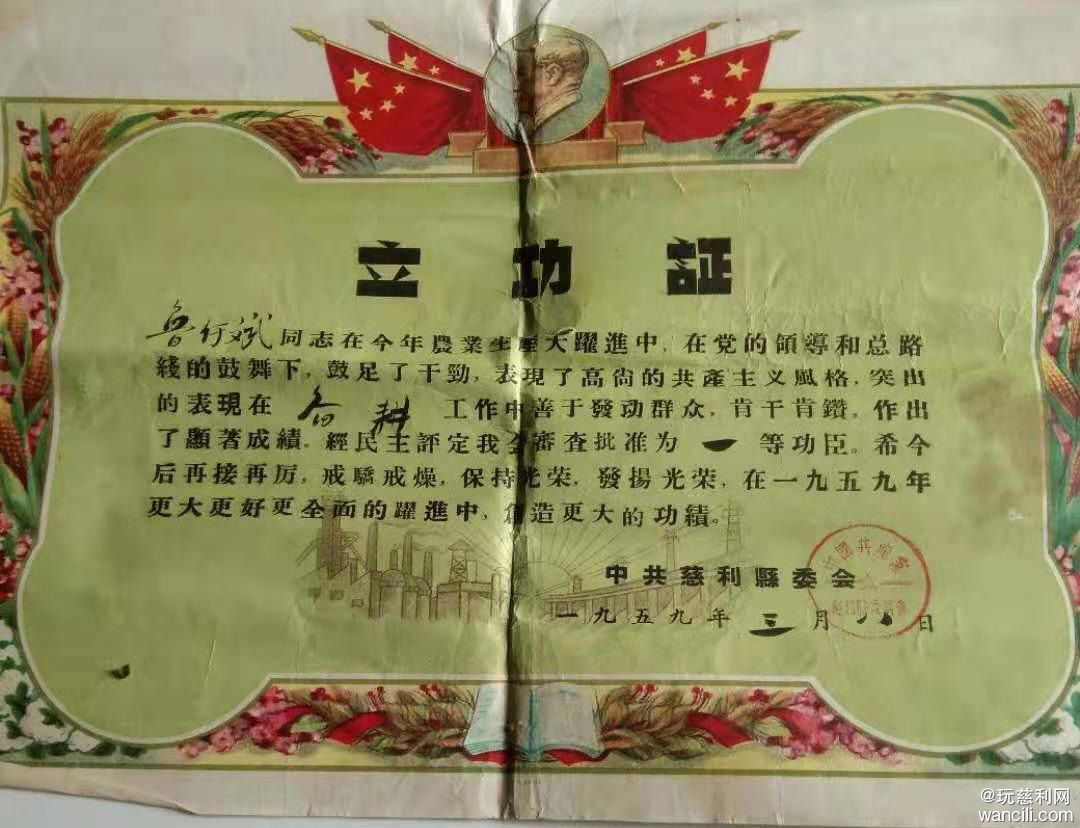 立功証
魯行斌同志在今年農業生產大躍進中，在党的領導和总路
綫的鼓舞下，鼓足了干勁，表現了高尙的共產主义風格，突出
的表現在 畜耕 工作中善于發动群众，肯干肯鑽，作出
了顯著成績。經民主評定我会審査批准为 一 等功臣。希今
后再接再厉，戒驕戒燥，保持光荣，發揚光荣，在一九五九年
更大更好更全面的躍進中，創造更大的功績。
中共慈利縣委会
一九五九年 三 月 八 日
中國共產黨
@玩慈利网
wancili.com